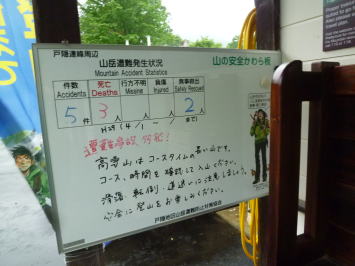 戸隠連峰周辺
山岳遭難発生状況
Mountain Accident Statistics
山の安全かわら板
件数 死亡 行方不明 負傷 無事救出
Accidents Deaths Missing Injured Safely Rescued
5件 3人 2人
H29 (4/1 ~ / )
遭難事故多発!
高妻山はコースタイムの長い山です。
コース、時間を確認して入山ください。
滑落、転倒、道迷いに注意しましょう。
安全に登山をお楽しみください。
戸隠地区山岳遭難防止対策協会